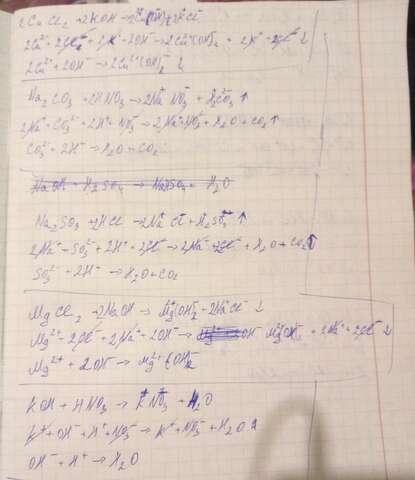 2CuCl₂ + 2KOH → 2Cu(OH)₂ + 2KCl
2Cu²⁺ + 2Cl⁻ + 2K⁺ + 2OH⁻ → 2Cu²⁺(OH)₂ + 2K⁺ + 2Cl⁻ ↓
2Cu²⁺ + 2OH⁻ → 2Cu²⁺(OH)₂ ↓
Na₂CO₃ + 2HNO₃ → 2Na⁺NO₃⁻ + H₂CO₃ ↑
2Na⁺ + CO₃²⁻ + 2H⁺ + NO₃⁻ → 2Na⁺ + NO₃⁻ + H₂O + CO₂ ↑
CO₃²⁻ + 2H⁻ → H₂O + CO₂
NaOH + H₂SO₄ → NaHSO₄ + H₂O
Na₂SO₃ + 2HCl → 2Na⁺Cl⁻ + H₂SO₃ ↑
2Na⁺ + SO₃²⁻ + 2H⁺ + 2Cl⁻ → 2Na⁺ + 2Cl⁻ + H₂O + CO₂ ↑
SO₃²⁻ + 2H⁻ → H₂O + CO₂
MgCl₂ + 2NaOH → Mg⁺(OH)₂ + 2Na⁺Cl⁻ ↓
Mg²⁺ + 2Cl⁻ + 2Na⁺ + 2OH⁻ → Mg²⁺(OH)₂ + 2Na⁺ + 2Cl⁻ ↓
Mg²⁺ + 2OH⁻ → Mg²⁺(OH)₂
KOH + HNO₃ → K⁺NO₃⁻ + H₂O
K⁺ + OH⁻ + H⁺ + NO₃⁻ → K⁺ + NO₃⁻ + H₂O
OH⁻ + H⁺ → H₂O